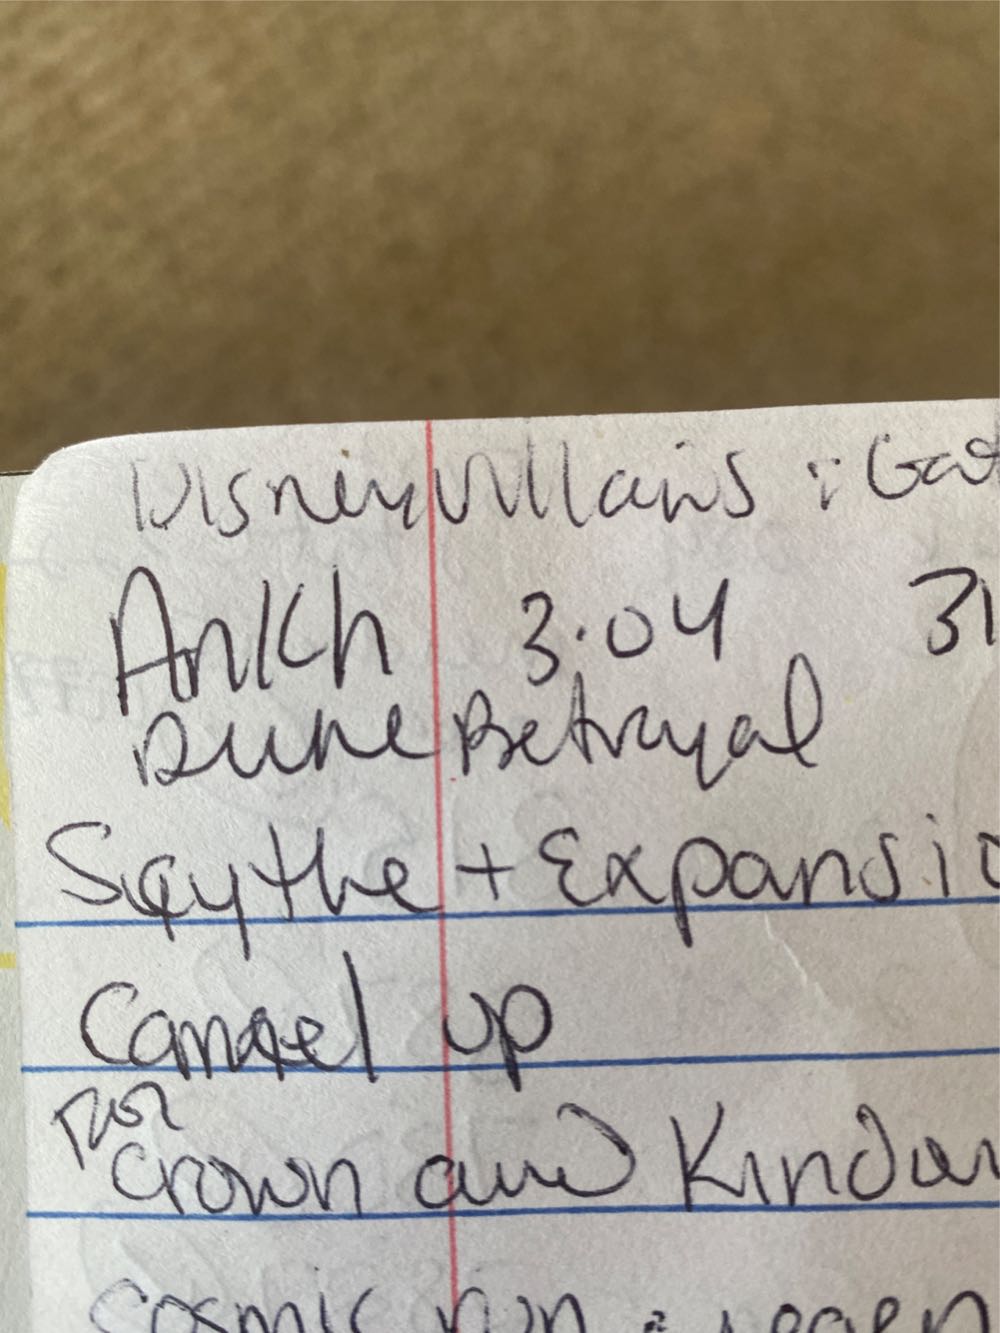 Disney Villains : Got
Ankh 3.04 31
Dune Betrayal
Scythe + Expansio
Camel up
For
Crown and Kindom
cosmic run : regen